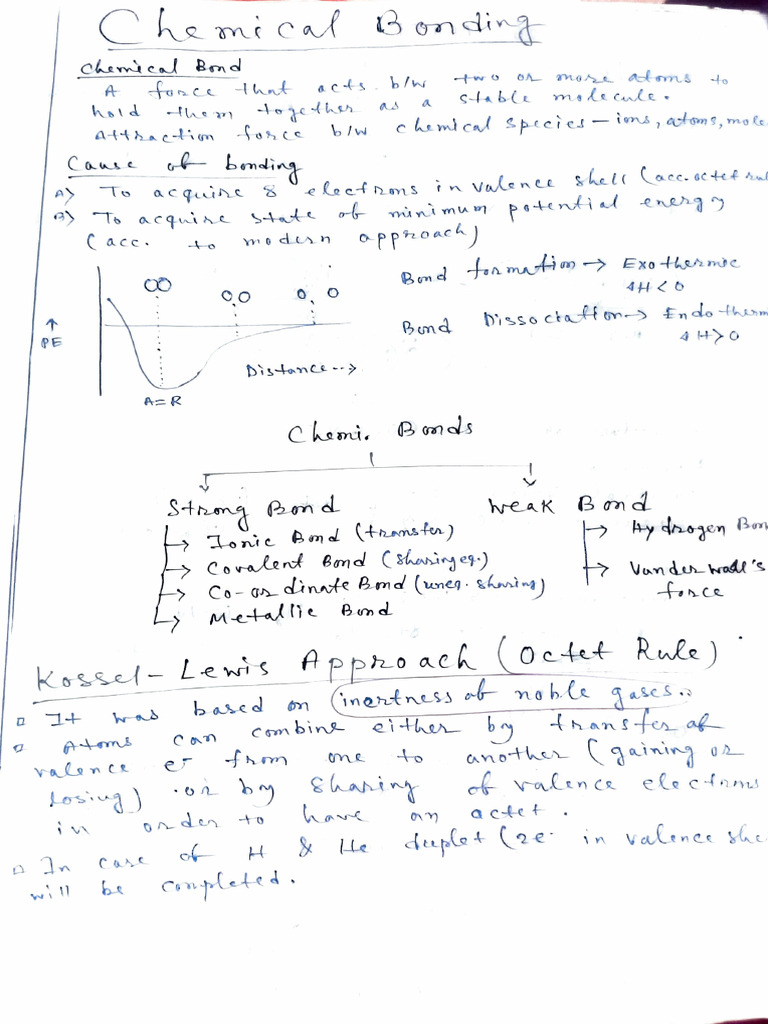 Chemical Bonding
Chemical Bond
A force that acts b/w two or more atoms to
hold them together as a stable molecule.
Attraction force b/w chemical species – ions, atoms, mole
Cause of bonding
A) To acquire 8 electrons in valence shell (acc. octet rul
B) To acquire state of minimum potential energy
(acc. to modern approach)
Bond formation → Exothermic
ΔH<0
Bond Dissociation → Endotherm
ΔH>0
↑
PE
Distance -->
A=R
Chemi. Bonds
Strong Bond
Weak Bond
→ Ionic Bond (transfer)
→ Covalent Bond (sharing eq.)
→ Co-ordinate Bond (uneq. sharing)
→ Metallic Bond
→ Hydrogen Bon
→ Vander waall's
force
Kossel-Lewis Approach (Octet Rule)
It was based on inertness of noble gases..
Atoms can combine either by transfer of
valence e⁻ from one to another (gaining or
losing) or by sharing of valence electrons
in order to have an octet.
In case of H & He duplet (2e⁻ in valence she
will be completed.